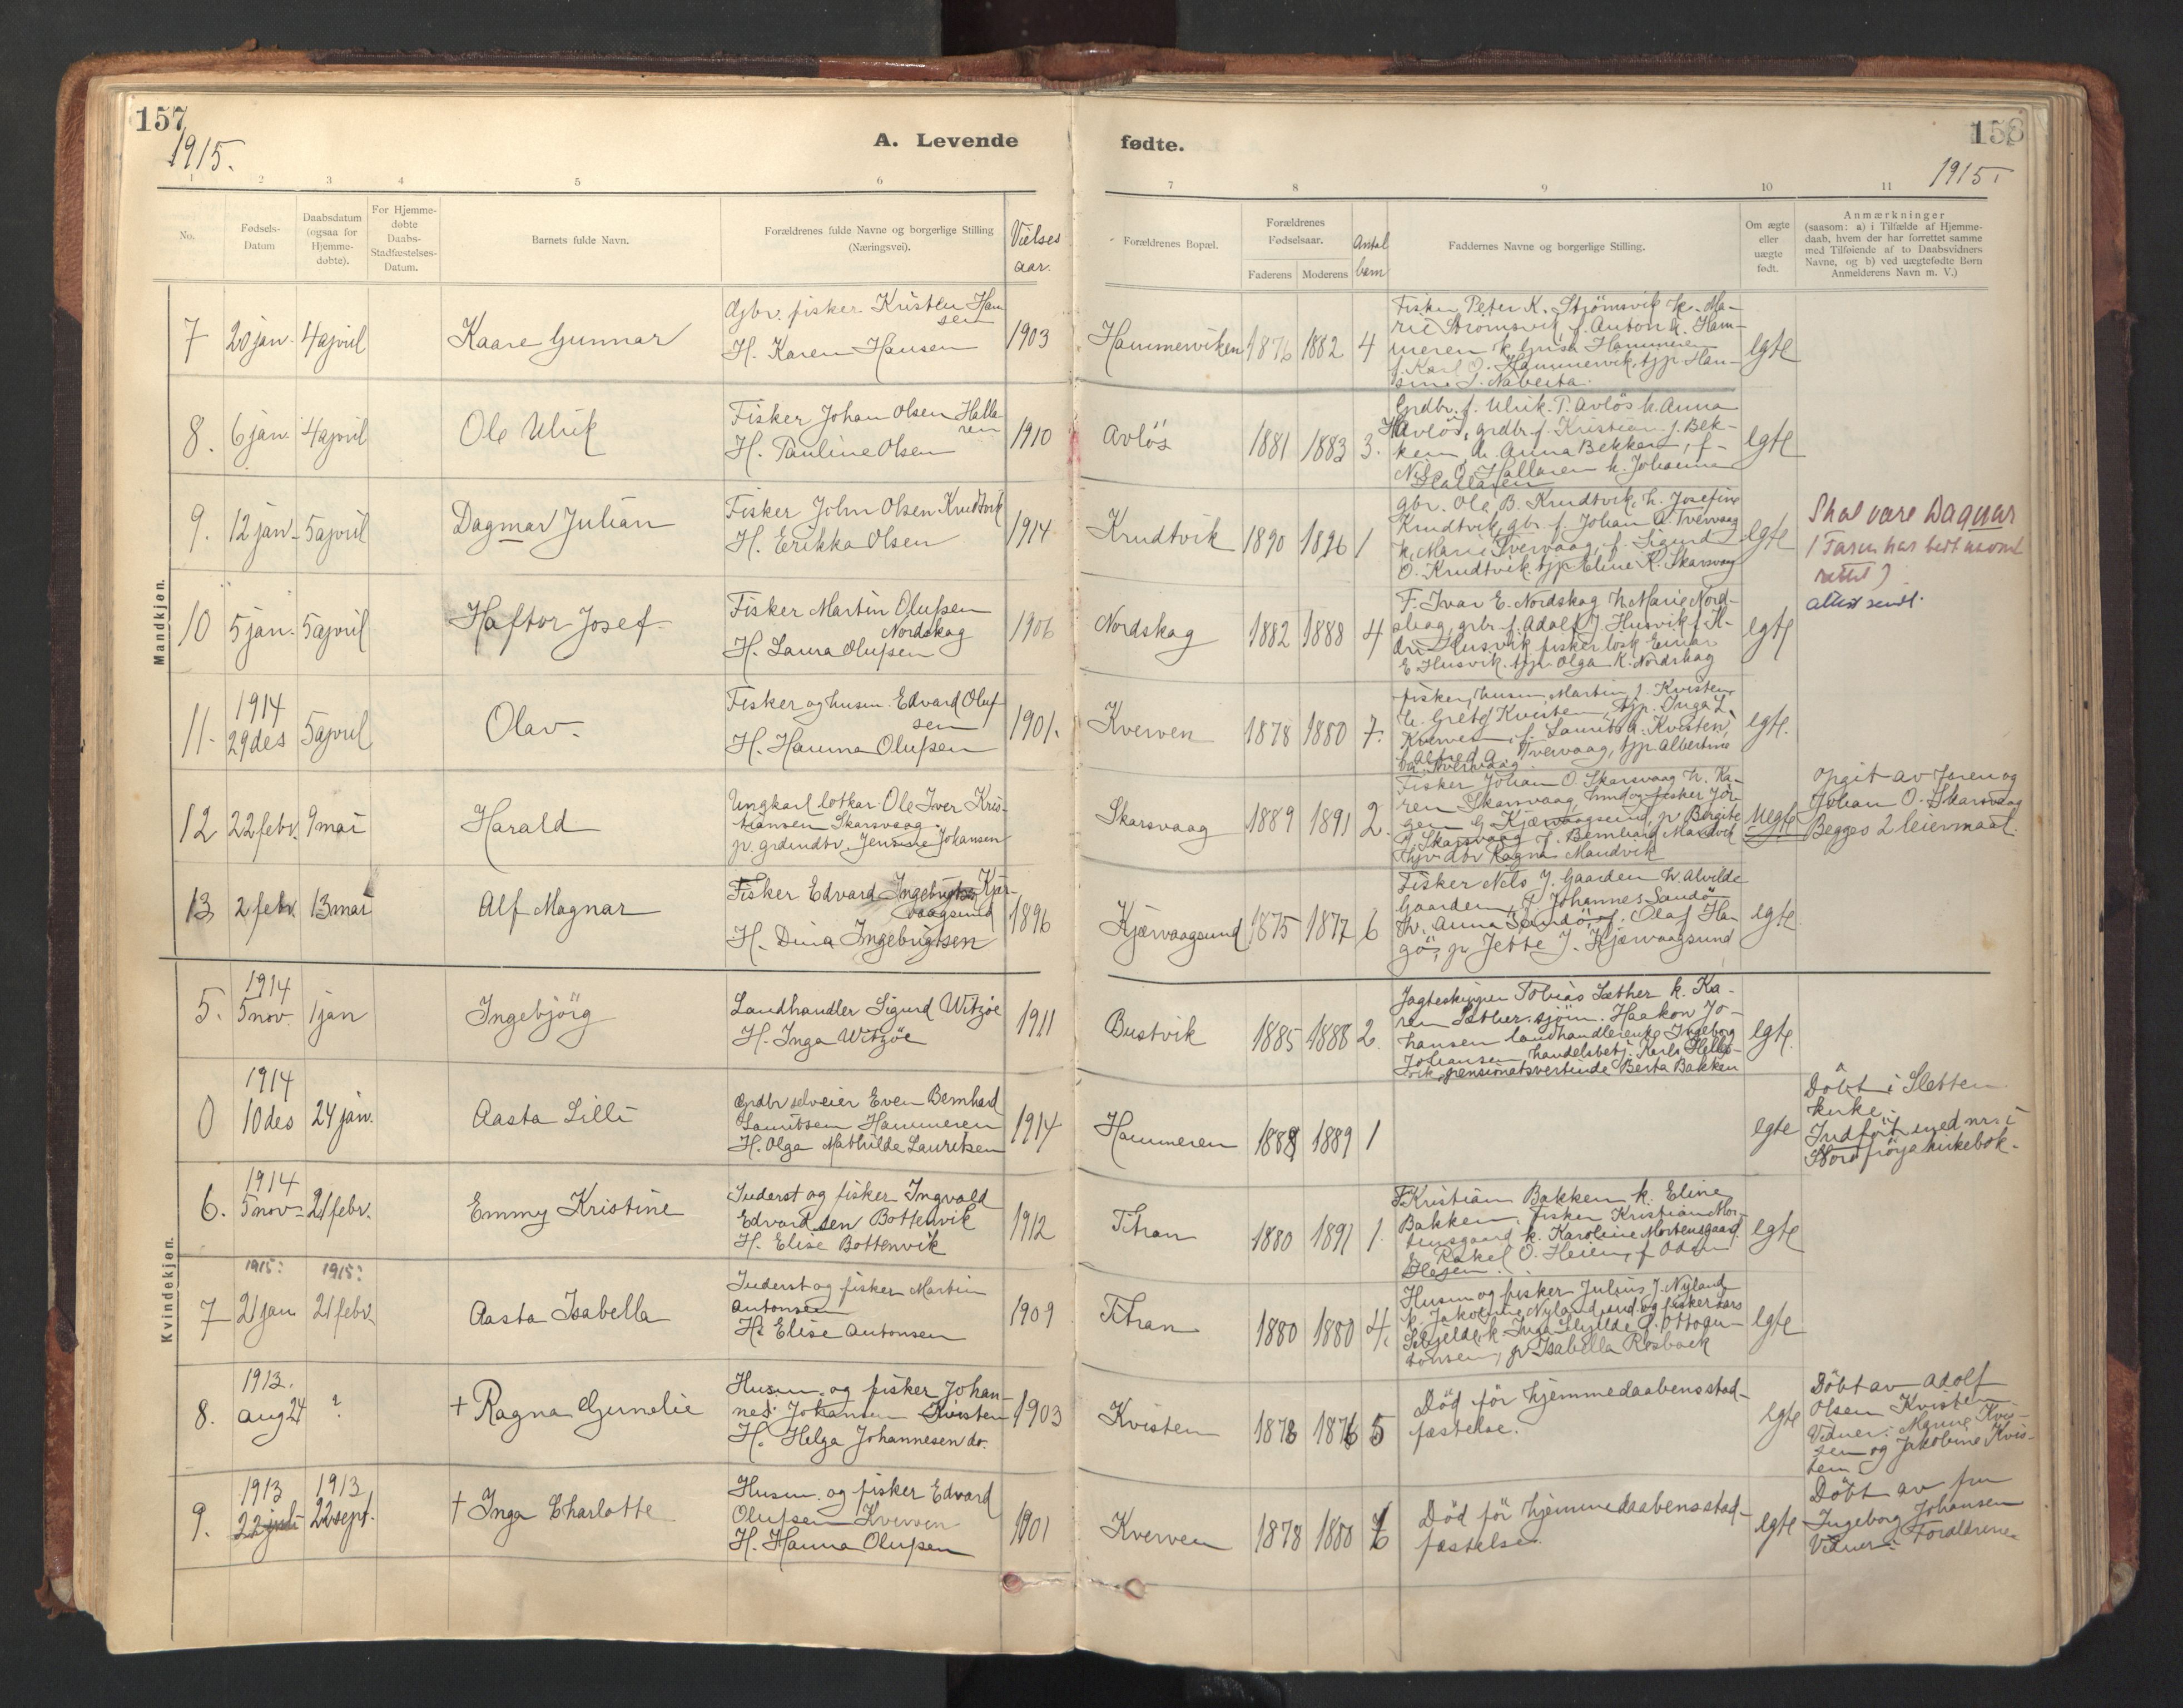 157
158
1915.
1915.
A. Levende
fødte.
1 2 3 4 5 6
7 8 9 10 11
No.
Fødsels-
Datum
Daabsdatum
(ogsaa for
Hjemme-
døbte).
For Hjemme-
døbte
Daabs-
Stadfæstelses-
Datum.
Barnets fulde Navn.
Forældrenes fulde Navne og borgerlige Stilling
(Næringsvei).
Vielses
aar.
Forældrenes Bopæl.
Forældrenes
Fødselsaar.
Faderens
Moderens
Antal
barn
Faddernes Navne og borgerlige Stilling.
Om ægte
eller
uægte
født.
Anmærkninger
(saasom: a) i Tilfælde af Hjemme-
daab, hvem der har forrettet samme
med Tilføiende af to Daabsvidners
Navne, og b) ved uægtefødte Børn
Anmelderens Navn m. V.)
Mandkjøn.
7 20 jan. 4 april
Kaare Gunnar
Gbr. fisker Kristen Han
sen
H. Karen Hansen
1903
Hammerviken 1876 1882 4
Fisker Peter K. Strömsvik k. Ma-
rie Strömsvik, f. Anton K. Ham-
meren k. Hammeren
f. Karl O. Hammervik, tjp. Han-
sine J. Nabeita.
egte
8. 6 jan. 4 april
Ole Ulrik
Fisker Johan Olsen Halla
ren
H. Pauline Olsen
1910
Avlös 1881 1883 3.
Grdbr. f. Ulrik P. Avlös h. Anna
Avlös, grdbr. f. Kristian J. Bek-
ken, h. Anna Bekken, f.
Nils O. Hallaren h. Johanna
Hallaren
egte
9. 12 jan. 5 april
Dagmar Julian
Fisker John Olsen Krudtvik
H. Erikka Olsen
1914
Krudtvik 1890 1896 1
gbr. Ole B. Krudtvik, h. Josefine
Krudtvik, gbr. f. Johan A. Tvervaag
h. Marie Tvervaag, f. Sigurd
O. Krudtvik. tjp Eline K. Skarsvaag
egte
Skal være Dagnar
(Faren har bedt
rettet)
attest sendt.
10 5 jan. 5 april
Haftor Josef
Fisker Martin Olufsen
Nordskag
H. Laura Olufsen
1906
Nordskag 1882 1888 4
F. Ivar E. Nordskag h. Marie Nord-
skag, grbr. f. Adolf J. Husvik f. H-
Husvik fisker losk Einar
E. Husvik. tjp. Olga K. Nordskag
egte
11. 1914
29 des 5 april
Olav.
Fisker og husm. Edvard Oluf-
sen
H. Hanna Olufsen
1901.
Kverven 1878 1880 7.
fisker, husm. Martin J. Kvisten
h. Grete Kvisten, tjp. Inga L.
Kverven, f. Laurits A. Kvisten,
f. Alfred A. Tvervaag, tjp. Albertine
A. Tvervaag.
egte.
12 22 febr. 9 mai
Harald
Ungkarl lotkar Ole Iver Kris-
tiansen Skarsvaag
p. grdmdtr. Jensine Johansen
Skarsvaag 1889 1891 2.
Fisker Johan O. Skarsvaag h. Ka-
ren Skarsvaag, fisker Jör-
gen G Kjærvaagsund, p. Bergite
O. Skarsvaag f. Bernhard Mandvik
Ragna Mandvik
Uegte
Opgit av faren og
Johan O. Skarsvaag
Begges 2 leiermaal.
13 2 febr. 13 mai
Alf Magnar
Fisker Edvard Ingebrigtsen Kjær-
vaagsund
H. Dina Ingebrigtsen
1896
Kjærvaagsund 1875 1877 6
Fisker Nils J. Gaarden h. Alvilde
Gaarden, f. Johannes Sandö
h. Anna Sandö, f. Olaf Han-
gö, p. Jette J. Kjærvaagsund
egte.
Kvindekjøn.
5. 1914
5 nov. 1 jan
Ingebjörg
Landhandler Sigurd Witzöe
H. Inga Witzöe
1911
Bustvik 1885 1888 2.
Jagteskipper Tobias Sæther k. Ka-
ren Sæther. Haakon Jo-
hansen landhandlerenke Ingeborg
Johansen, handelsbetj. Karl
vik, pensionatsvertinde Berta Bakken
egte.
0 1914
10 des 24 jan.
Aasta Lilli
Grdbr selveier Even Bernhard
Lauritsen Hammeren
H. Olga Mathilde Lauritsen
1914
Hammeren 1888 1889 1
egte
Döbt i Sletten
kirke.
Indført med nr. i
Nord fröya kirkebok.
6. 1914
5 nov. 21 febr.
Emmy Kristine
Inderst og fisker Ingvald
Edvardsen Bottenvik
H. Elise Bottenvik
1912
Titran 1880 1891 1.
F. Kristian Bakken k. Eline
Bakken, fisker Kristian Mor-
tensgaard k. Karoline Mortensgaard.
Rakel O. Heien, f. Odin
Heien.
egte
7 1915: 1915:
21 jan 21 febr.
Aasta Isabella
Inderst og fisker Martin
Antonsen
H. Elise Antonsen
1909
Titran 1880 1880 4.
Husm og fisker Julius J. Nyland
k. Jakobine Nyland, ind. og fisker Lars
Selvjelde k. Inga Selvjelde, f. Otto An-
tonsen, p. Isabella Rosbæk
egte
8. 1913.
aug 24 ?
+ Ragna Gurnelie
Husm. og fisker Johan-
nes Johansen Kvisten
H. Helga Johannesen do.
1903
Kvisten 1878 1876 5
Död för hjemmedaabens stad-
fæstelse.
egte
Döbt av Adolf
Olsen Kvisten
Vidner: Marine Kvis-
ten og Jakobine Kvis-
ten
9. 1913 1913
22 juli 22 sept.
+ Inga Charlotte
Husm. og fisker Edvard
Olufsen Kverven
H. Hanna Olufsen
1901
Kverven 1878 1880 6
Död för hjemmedaabens stad-
fæstelse.
egte
Döbt av fru
Ingeborg Johansen
Vidner: Forældrene